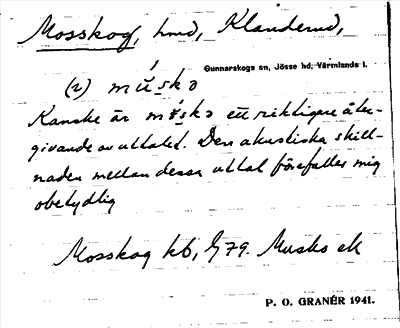 Mosskog, hmd, Klanderud,
Gunnarskogs sn, Jösse hd, Värmlands l.
(2) múskə
Kanske är møskə ett riktigare åter-
givande av uttalet. Den akustiska skill-
naden mellan dessa uttal förefaller mig
obetydlig
Mosskog kb, 79. Musko ek
P. O. GRANÉR 1941.